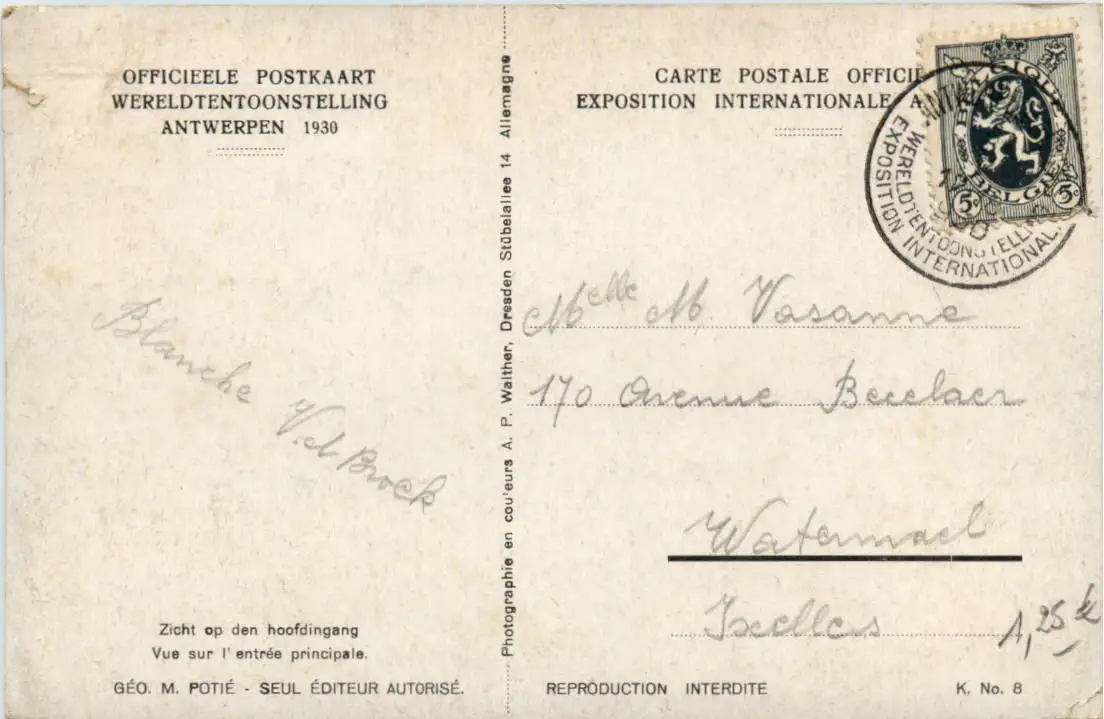 OFFICIEELE POSTKAART
WERELDTENTOONSTELLING
ANTWERPEN 1930
Blanche V.d Broeck
Zicht op den hoofdingang
Vue sur l' entrée principale.
GÉO. M. POTIÉ - SEUL ÉDITEUR AUTORISÉ.
Photographie en cou'eurs A. P. Walther, Dresden Stübelallee 14 Allemagne
CARTE POSTALE OFFICI
EXPOSITION INTERNATIONALE A
BELGIQUE
BELGIË
5c 5c
WERELDTENTOONSTELL
EXPOSITION INTERNATIONAL.
Melle M. Vasanne
170 Avenue Beeelaer
Watermael
Ixelles
1,25
REPRODUCTION INTERDITE
K. No. 8